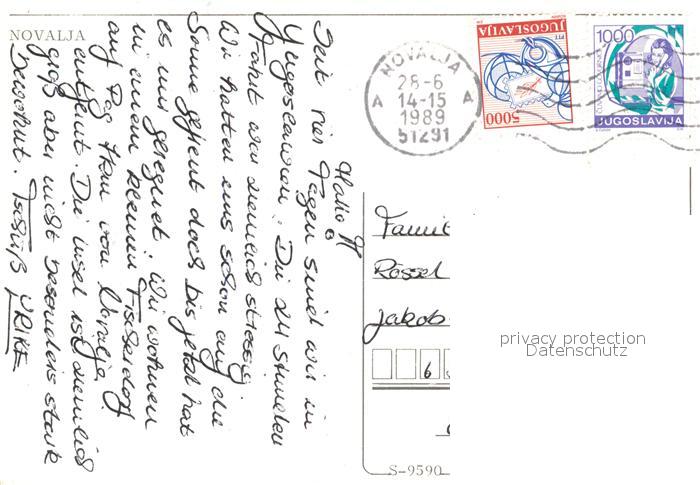 NOVALJA
Hallo
Seit vier Tagen sind wir in
Yugoslawien. Die 24 stunden
Fahrt war ziemlich stressig.
Wir hatten uns schon auf die
Sonne gefreut doch bis jetzt hat
es nur geregnet. Wir wohnen
in einem kleinen Fischerdorf
auf Pag 4km von Novalja
entfernt. Die Insel ist ziemlich
groß aber nicht besonders stark
bewohnt. Tschüß ULRIKE
NOVALJA
28-6
A 14-15 A
1989
51291
PTT JUGOSLAVIJA
5000
1000
JUGOSLAVIJA
Famil
Rössel
Jakob
6
S-9590
privacy protection
Datenschutz